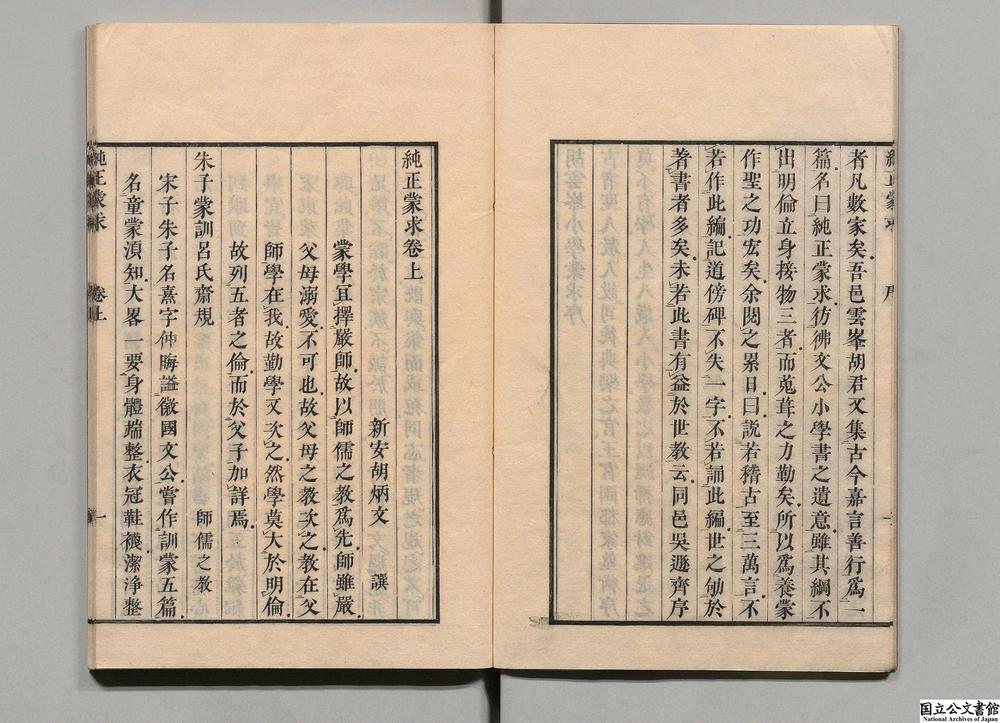 純正蒙求 序
者凡數家矣吾邑雲峯胡君又集古今嘉言善行爲一
篇名曰純正蒙求彷彿文公小學書之遺意雖其綱不
出明倫立身接物三者而蒐葺之力勤矣所以爲養蒙
作聖之功宏矣余閱之累日曰説若稽古至三萬言不
若作此編記道傍碑不失一字不若誦此編世之劬於
著書者多矣未若此書有益於世教云同邑吳遯齊序
純正蒙求卷上
新安胡炳文 譔
蒙學宜擇嚴師故以師儒之教爲先師雖嚴
父母溺愛不可也故父母之教次之教在父
師學在我故勤學又次之然學莫大於明倫
故列五者之倫而於父子加詳焉
朱子蒙訓呂氏齋規 師儒之教
宋子朱子名熹字仲晦謚徽國文公嘗作訓蒙五篇
名童蒙須知大畧一要身體端整衣冠鞋襪潔淨整
純正蒙求 卷上 一
国立公文書館
National Archives of Japan